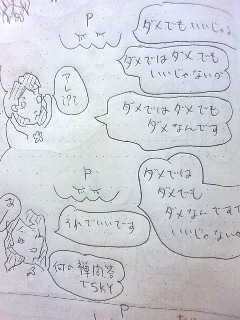 P
ダメでもいいじゃ
ダメではダメでも
いいじゃないか
アレ
???
ダメではダメでも
ダメなんです
P
ダメでは
ダメでも
ダメなんですで
いいじゃないか
あ
それでいいです
何の禅問答
でSKY